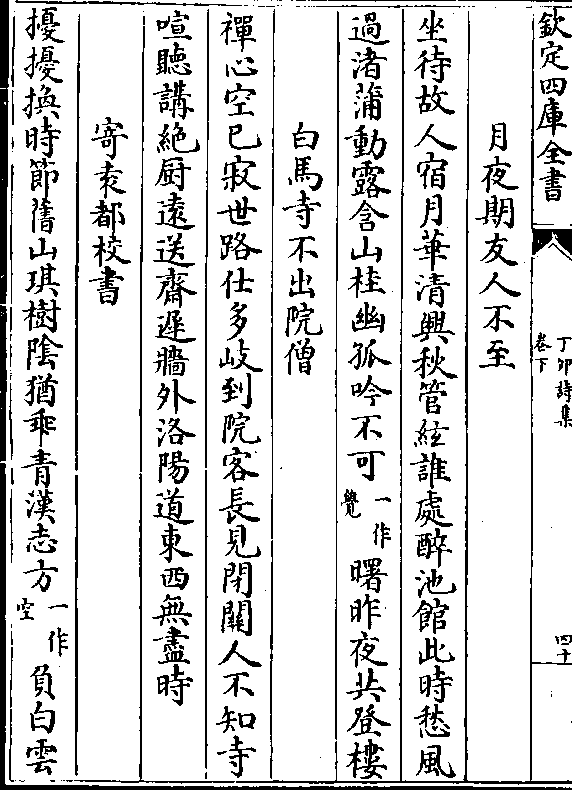 欽定四庫全書
丁卯詩集
卷下
四十
月夜期友人不至
坐待故人宿月華清興秋管絃誰處醉池館此時愁風
過渚蒲動露含山桂幽孤吟不可一作覺曙昨夜共登樓
白馬寺不出院僧
禪心空已寂世路仕多岐到院客長見閉關人不知寺
喧聽講絶厨遠送齋遲牆外洛陽道東西無盡時
寄袁都校書
擾擾換時節舊山琪樹陰猶乖青漢志方一作空負白雲